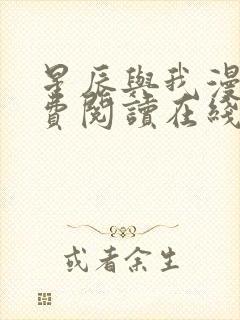 星辰與我漫
費閱讀在綫
或者余生